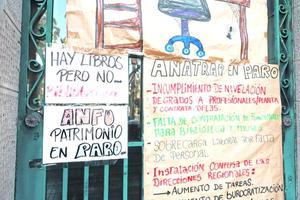 HAY LIBROS
PERO NO...
ANFU
PATRIMONIO
EN PARO
ANATRAP EN PARO
- INCUMPLIMIENTO DE NIVELACIÓN
DE GRADOS A PROFESIONALES/PLANTA
Y CONTRATA. DFL35.
- FALTA DE CONTRATACIÓN DE
PARA BIBLIOTECA Y MUSEO
- SOBRECARGA LABORAL POR FALTA
DE PERSONAL.
- INSTALACIÓN CONFUSA DE LAS
DIRECCIONES REGIONALES:
→ AUMENTO DE TAREAS.
AUMENTO DE BUROCRATIZACIÓN